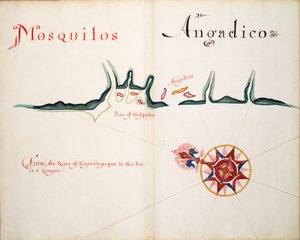 Mosquitos
Angadico
Angadico
Port of Mosquitos
From the River of Tequantepeque to this Port
is 9 Leagues